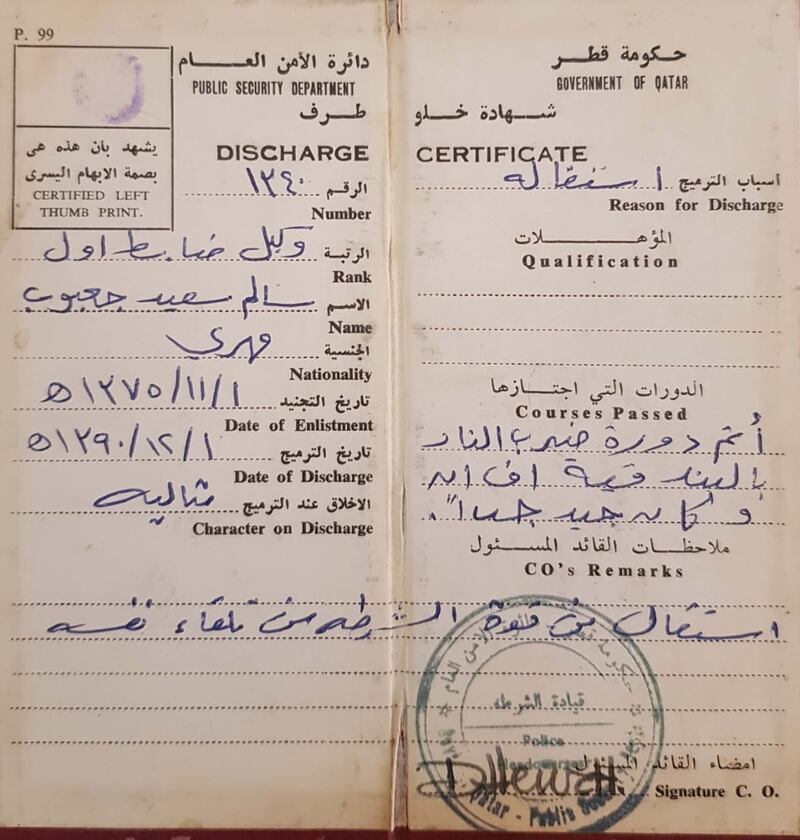 P. 99
يشهد بان هذه هي
بصمة الابهام اليسرى
CERTIFIED LEFT
THUMB PRINT.
دائرة الأمن العـــام
PUBLIC SECURITY DEPARTMENT
طـــرف
DISCHARGE
الرقم ١٣٤٠
Number
الرتبة وكيل ضابط اول
Rank
الاسم سالم سعيد جعبوب
Name
الجنسية مهري
Nationality
تاريخ التجنيد ١/١١/١٣٧٥ه
Date of Enlistment
تاريخ الترميج ١/١٢/١٣٩٠ه
Date of Discharge
الاخلاق عند الترميج مثاليه
Character on Discharge
حـكـومة قطـــر
GOVERNMENT OF QATAR
شـــهادة خـــلو
CERTIFICATE
اسباب الترميج استقاله
Reason for Discharge
المؤهـــــــلات
Qualification
الدورات التي اجتـــازها
Courses Passed
أتم دورة ضرب النار
بالبندقية اف ان
و كان جيد جداً.
ملاحظـــات القائد المســـئول
CO's Remarks
استقال من قوة الشرطه من تلقاء نفسه
قيادة الشرطه
Police
Headquarters
Qatar - Public
امضاء القائد المسئول
Signature C. O.